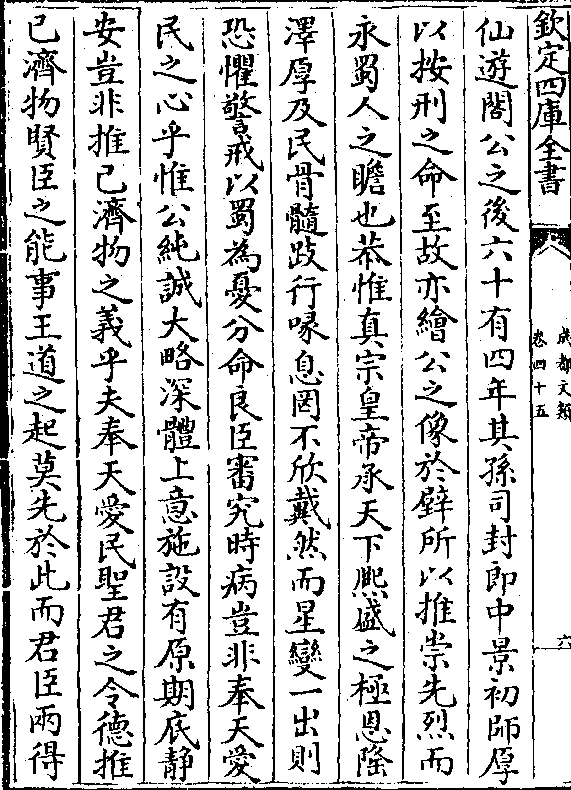 欽定四庫全書
成都文類
卷四十五
六
仙遊閣公之後六十有四年其孫司封郎中景初師厚
以按刑之命至故亦繪公之像於壁所以推崇先烈而
永蜀人之瞻也恭惟真宗皇帝承天下熈盛之極恩隆
澤厚及民骨髓跂行喙息罔不欣戴然而星變一出則
恐懼警戒以蜀為憂分命良臣審究時病豈非奉天愛
民之心乎惟公純誠大略深體上意施設有原期底靜
安豈非推已濟物之義乎夫奉天愛民聖君之令德推
已濟物賢臣之能事王道之起莫先於此而君臣兩得